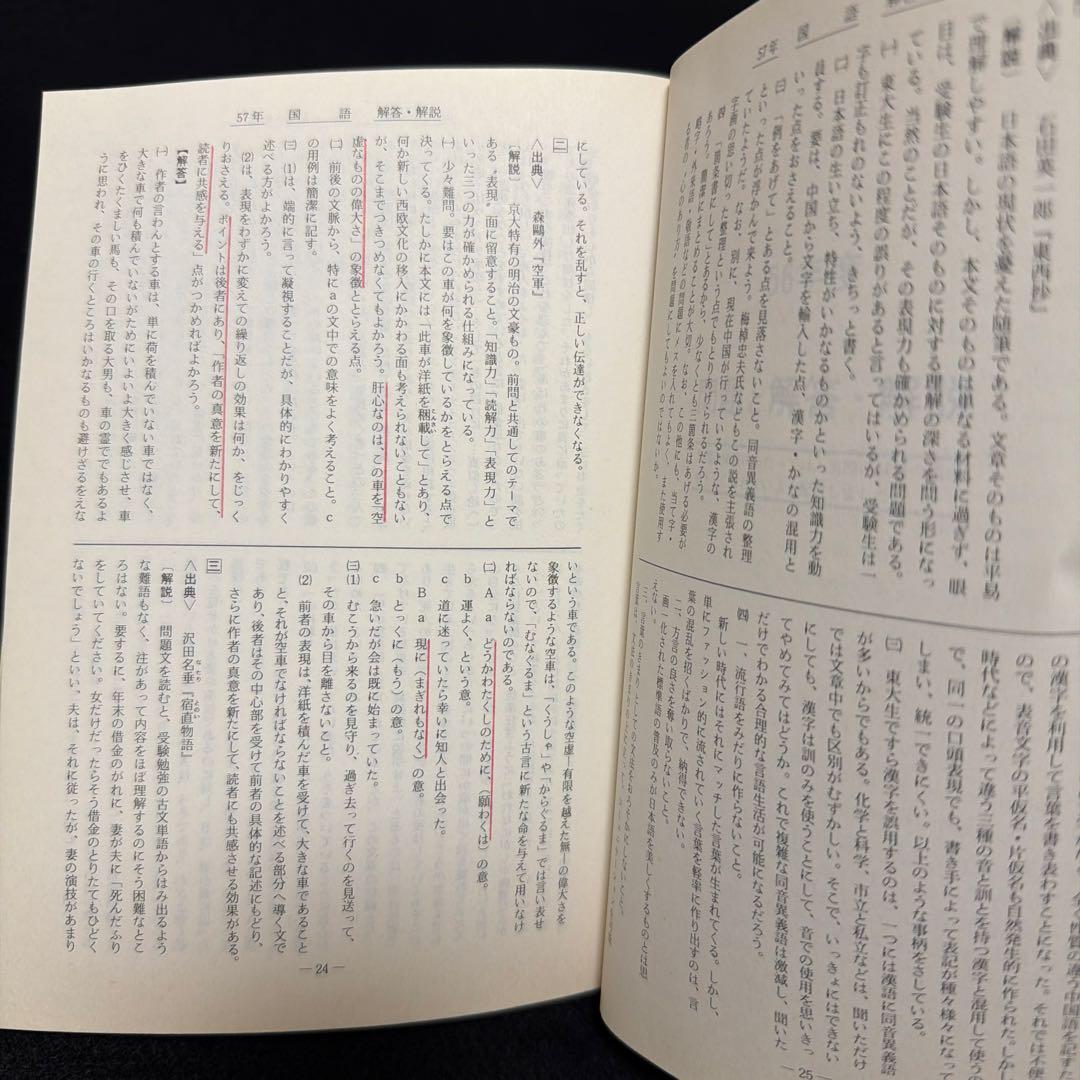 57年 国語
〔解説〕 日本語の現状を憂えた随筆である。文章そのものは平易
で理解しやすい。が、本文そのものは単なる材料に過ぎず、眼
目は、受験生の日本語そのものに対する理解の深さを問う形になっ
ている。当然のことながら、その表現力も確かめられる問題である。
㈠ 東大生にこの程度の誤りがあると言ってはいるが、受験生は一
字も訂正もれのないよう、きちっと書く。
㈡ 日本語の生い立ち、特性がいかなるものかといった知識力を動
員する。要は、中国から文字を輸入した点、漢字・かなの混用と
いった点をおさえること。
㈢ 「例をあげて」とある点を見落さないこと。同音異義語の整理
といった点が浮かんで来よう。梅棹忠夫氏などもこの説を主張され
ていたようだ。なお、別に、現在中国が行っているような、漢字の
字画の思い切った整理という点でもとりあげられるだろう。
四 「箇条書にして」とあるから、少なくとも三箇条はあげる必要が
あろう。簡潔にまとめることが大切。なお、この他にも、当て字・
略字・外来語・敬語などの問題にメスを入れてもよく、また使用す
る者の「心のあり方」を問題にしてもよいのではないか。
の漢字を利用して言葉を書き表わすことになった。それでは不便
ので、表音文字の平仮名・片仮名も自然発生的に作られた。しかし
時代などによって違う三種の音と訓とを持つ漢字と混用して使うの
で、同一の口頭表現でも、書き手によって表記が種々様々になって
しまい、統一できにくい。以上のような事柄をさしている。
㈢ 東大生ですら漢字を誤用するのは、一つには漢語に同音異義語
が多いからでもある。化学と科学、市立と私立などは、聞いただけ
では文章中でも区別がむずかしい。そこで、いっきょにはできない
にしても、漢字は訓のみを使うことにして、音での使用を思いきっ
てやめてみてはどうか。これで複雑な同音異義語は激減し、聞いた
だけでわかる合理的な言語生活が可能になるだろう。
四 一、流行語をみだりに作らないこと。
新しい時代にはそれにマッチした言葉が生まれてくる。しかし、
単にファッション的に流されていく言葉を軽率に作り出すのは、言
葉の混乱を招くばかりで、納得できない。
二、方言の良さを奪い取らないこと。
画一化された標準語の普及のみが日本語を美しくするものとは思
えない。
25
57年 国語 解答・解説
にしている。それを乱すと、正しい伝達ができなくなる。
二
〈出典〉 森鷗外『空車』
〔解説〕 京大特有の明治の文豪もの。前問と共通してのテーマで
ある〝表現〟面に留意すること。「知識力」「読解力」「表現力」と
いった三つの力が確かめられる仕組みになっている。
㈠ 少々難問。要はこの車が何を象徴しているかをとらえる点で
決ってくる。たしかに本文には「此車が洋紙を稇載して」とあり、
何か新しい西欧文化の移入にかかわる面も考えられないこともない
が、そこまでつきつめなくてもよかろう。肝心なのは、この車を「空
虚なものの偉大さ」の象徴ととらえる点。
㈡ 前後の文脈から、特にaの文中での意味をよく考えること。c
の用例は簡潔に記す。
㈢ ⑴は、端的に言って凝視することだが、具体的にわかりやすく
述べる方がよかろう。
⑵は、表現をわずかに変えての繰り返しの効果は何か、をじっく
りおさえる。ポイントは後者にあり、「作者の真意を新たにして、
読者に共感を与える」点がつかめればよかろう。
【解答】
㈠ 作者の言わんとする車は、単に荷を積んでいない車ではなく、
大きな車で何も積んでいないがためにいよいよ大きく感じさせ、車
をひくたくましい馬も、その口を取る大男も、車の霊ででもあるよ
うに思われ、その車の行くところはいかなるものも避けざるをえな
いという車である。このような空虚―有限を越えた無―の偉大さを
象徴するような空車は、「くうしゃ」や「からぐるま」では言い表せ
ないので、「むなぐるま」という古言に新たな命を与えて用いなけ
ればならないのである。
㈡ A a どうかわたくしのために、(願わくは)の意。
b 運よく、という意。
c 道に迷っていたら幸いに知人と出会った。
B a 現に(まぎれもなく)の意。
b とっくに(もう)の意。
c 急いだが会は既に始まっていた。
㈢⑴ むこうから来るのを見守り、過ぎ去って行くのを見送って、
その車から目を離さないこと。
⑵ 前者の表現は、洋紙を積んだ車を受けて、大きな車であること
と、それが空車でなければならないことを述べる部分へ導く文で
あり、後者はその中心部を受けて前者の具体的な記述にもどり、
さらに作者の真意を新たにして、読者にも共感させる効果がある。
三
〈出典〉 沢田名垂『宿直物語』
〔解説〕 問題文を読むと、受験勉強の古文単語からはみ出るよう
な難語もなく、注があって内容をほぼ理解するのにそう困難なとこ
ろはない。要するに、年末の借金のがれに、妻が夫に「死んだふり
をしていてください。女だけだったらそう借金のとりたてもひどく
ないでしょう」といい、夫は、それに従ったが、妻の演技があまり
―24―